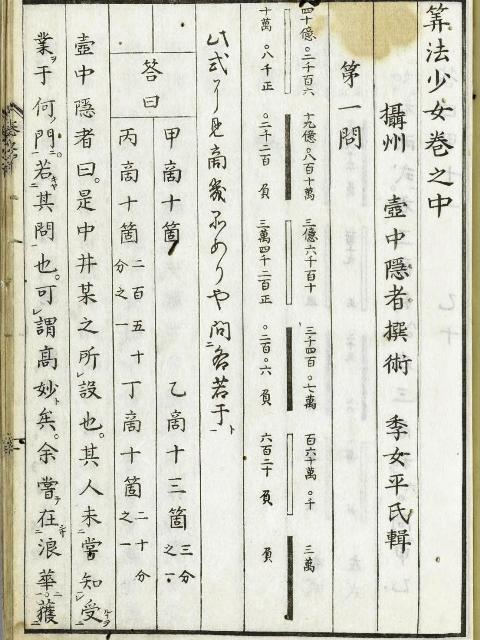 筭法少女巻之中
攝州 壺中隠者撰術 季女平氏輯
第一問
四十億。二千百六 十九億。八百十萬 三億六千百十 三千四百。七萬 百六十萬。千 三萬
十萬。八千正 。二千二百負 三萬四千二百正 。二百。六負 六百二十負 負
此式より見商幾品ありや問各若于
答曰
甲商十箇 乙商十三箇三分之一
丙商十箇二百五十分之一 丁商十箇二十分之一
壺中隠者曰。是中井某之所設也。其人未嘗知受
業于何門。若其問也。可謂高妙矣。余嘗在浪華。獲